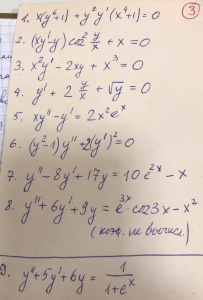 ③
1. x(y⁶+1) + y²y'(x⁴+1) = 0
2. (xy'-y) cos² y/x + x = 0
3. x²y' - 2xy + x³ = 0
4. y' + 2 y/x + √y = 0
5. xy'' - y' = 2x²eˣ
6. (y²-1)y'' + 2(y')² = 0
7. y'' - 8y' + 17y = 10e²ˣ - x
8. y'' + 6y' + 9y = e³ˣ · cos3x - x²
(коэф. не вычисл.)
9. y'' + 5y' + 6y = 1/(1+eˣ)